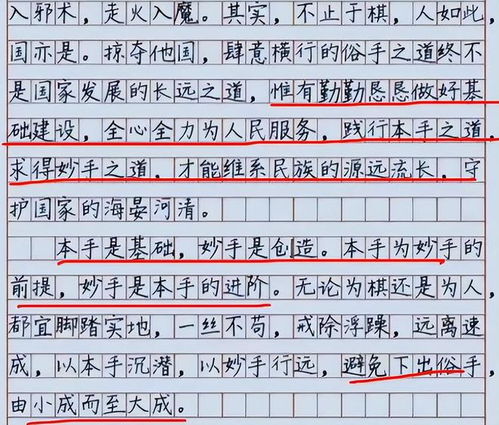 入邪术，走火入魔。其实，不止于棋，人如此，
国亦是。掠夺他国，肆意横行的俗手之道终不
是国家发展的长远之道，惟有勤勤恳恳做好基
础建设，全心全力为人民服务，践行本手之道，
求得妙手之道，才能维系民族的源远流长，守
护国家的海晏河清。
本手是基础，妙手是创造。本手为妙手的
前提，妙手是本手的进阶。无论为棋还是为人，
都宜脚踏实地，一丝不苟，戒除浮躁，远离速
成，以本手沉潜，以妙手行远，避免下出俗手，
由小成而至大成。